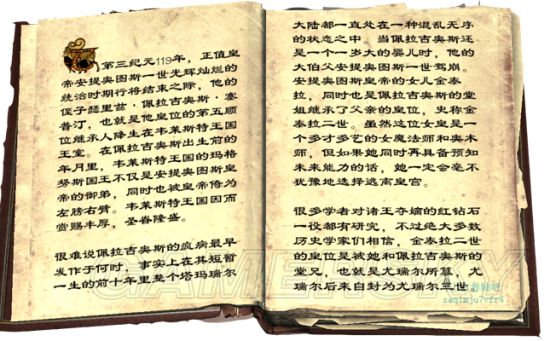 第三纪元119年，正值皇
帝安提奥图斯一世光辉灿烂的
统治时期行将结束之际，他的
侄子瑟里兹·佩拉吉奥斯·塞
普汀，也就是他皇位的第五顺
继承人降生在韦莱斯特王国
王室。在佩拉吉奥斯出生前的
年月里，韦莱斯特王国的玛格
努斯国王不仅是安提奥图斯皇
帝的御弟，同时也被皇帝倚为
左膀右臂。韦莱斯特王国因而
赏赐丰厚，圣眷隆盛。
很难说佩拉吉奥斯的疯病最早
发作于何时，事实上在其短暂
一生的前十年里整个塔玛瑞尔
大陆都一直处在一种混乱无序
的状态之中。当佩拉吉奥斯还
是一个一岁大的婴儿时，他的
大伯父安提奥图斯一世驾崩。
安提奥图斯皇帝的女儿金泰
拉，同时也是佩拉吉奥斯的堂
姐继承了父亲的皇位，史称金
泰拉二世。虽然这位女皇是一
个多才多艺的女魔法师和奥术
师，但如果她同时再具备预知
未来能力的话，她一定会毫不
犹豫地选择逃离皇宫。
很多学者对诸王夺嫡的红钻石
一役都有研究，不过绝大多数
历史学家们相信，金泰拉二世
的皇位是被她和佩拉吉奥斯的
堂兄，也就是尤瑞尔所篡，尤
瑞尔后来自封为尤瑞尔三世
GAMERSKY
zaq1mju7vfr4